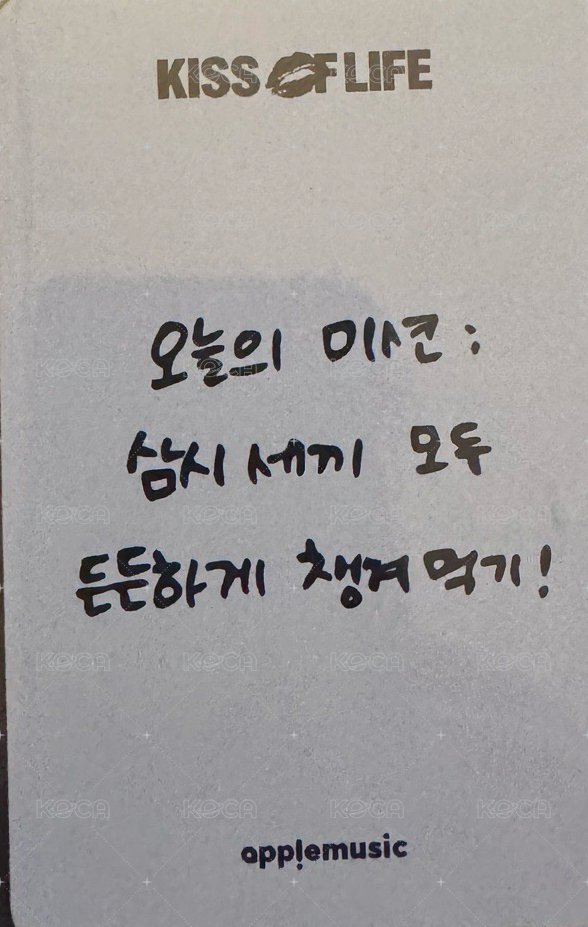 KISS OF LIFE
오늘의 미션 :
삼시 세끼 모두
든든하게 챙겨 먹기!
applemusic
KOCA